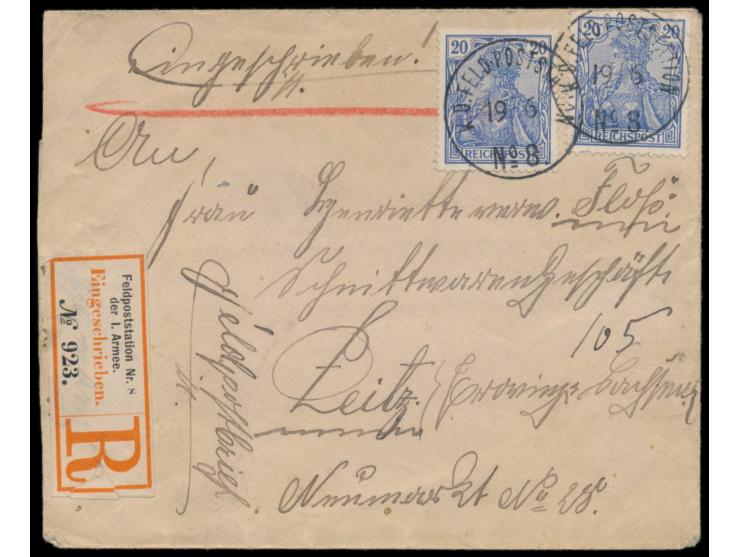 Eingeschrieben!
20 20
K.D. FELD-POSTSTATION
19 6
No 8.
REICHSPOST
20 20
K.D. FELD-POSTSTATION
19 6
No 8.
REICHSPOST
An,
Frau Henriette verw. Floß.
Schnittwaren Geschäft
105
Zeitz. (Provinz Sachsen)
Neumarkt No 28c
Feldpostbrief
Feldpoststation Nr. 8
der I. Armee.
Eingeschrieben.
No 923.
R